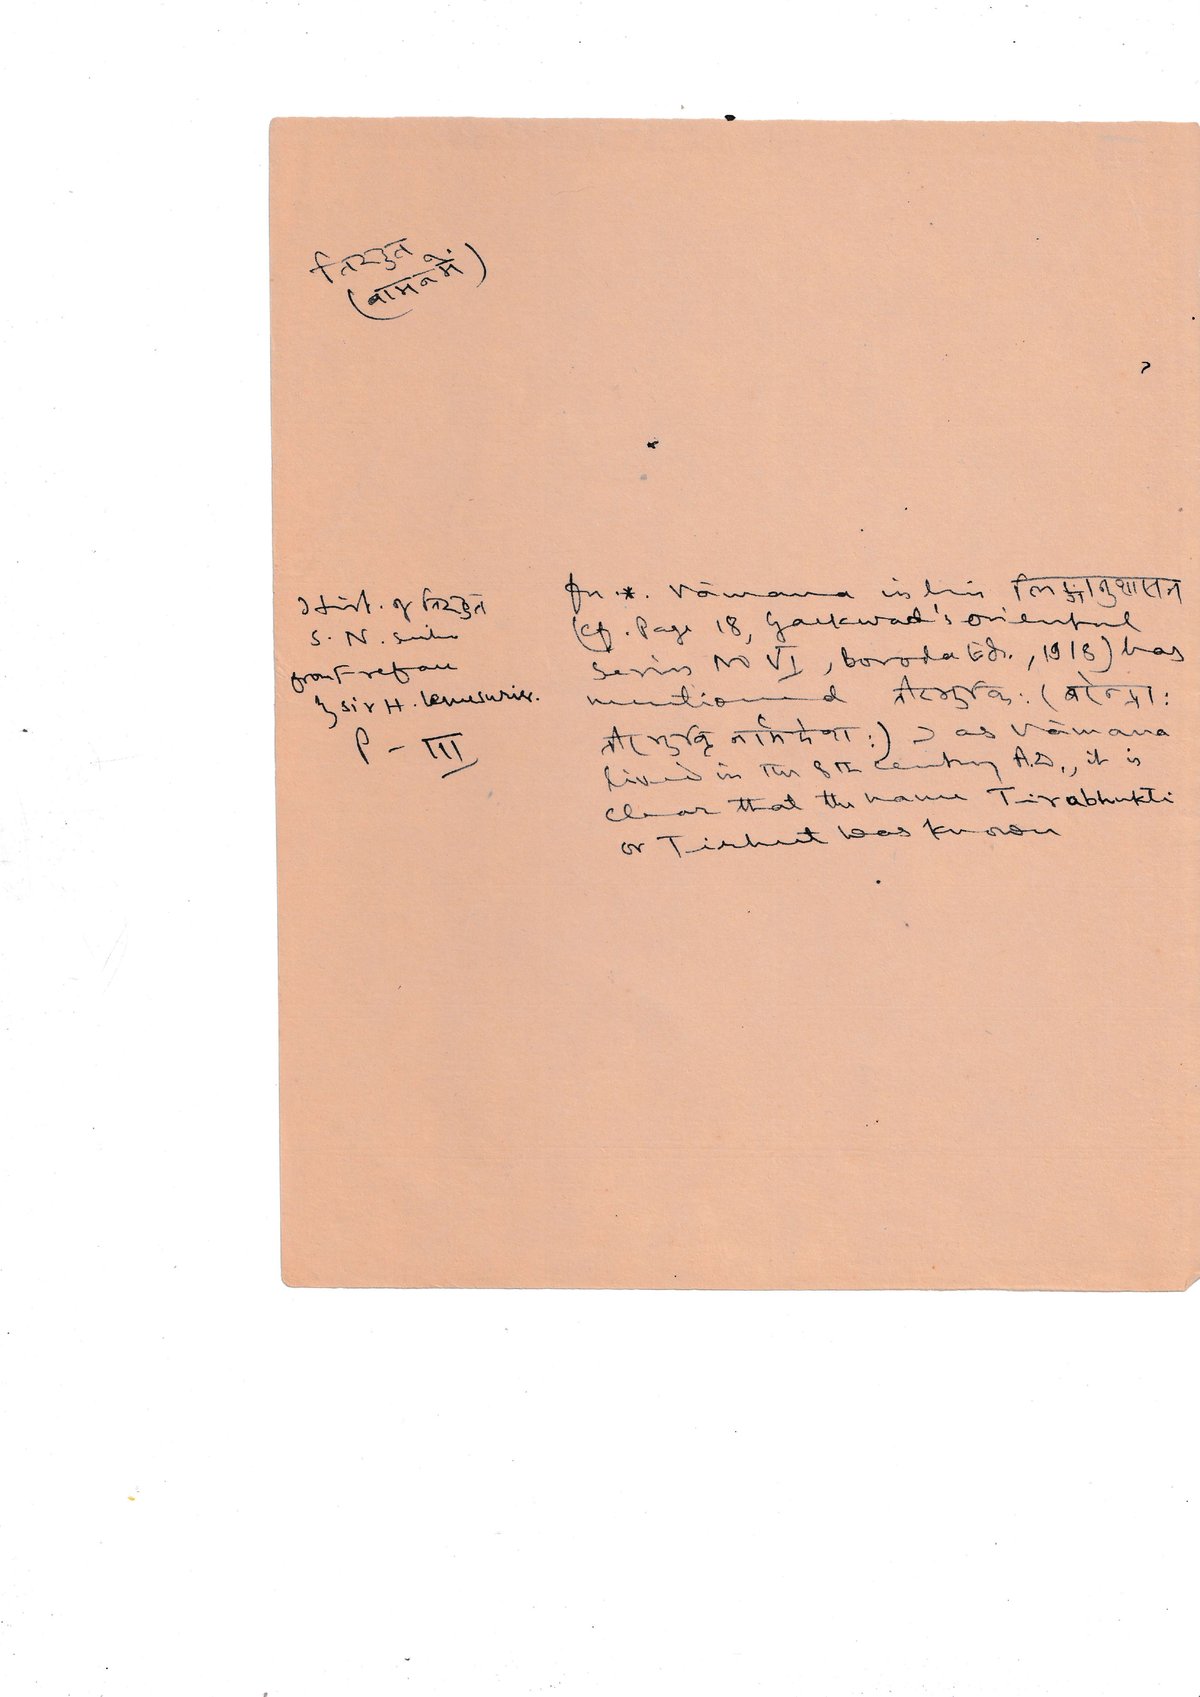 तिरहुत
(वामन में)
Hist. of तिरहुत
S. N. Sinha
from Preface
by Sir H. Wheeler
P - III
fn. *. Vāmana in his लिङ्गानुशासन
(cf. Page 18, Gaekwad's oriental
Series No VI, boroda Ed., 1918) has
mentioned
as Vāmana
lived in the 8th century A.D., it is
clear that the name Tirabhukti
or Tirhut was known